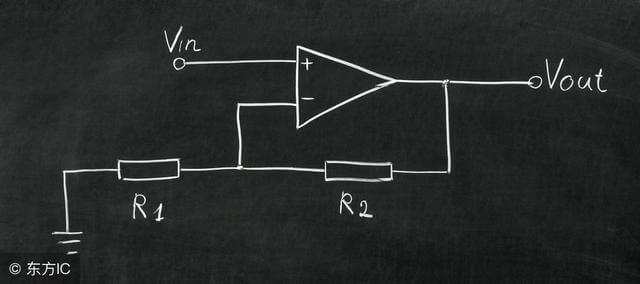 Vin
+
−
Vout
R1
R2
© 东方IC